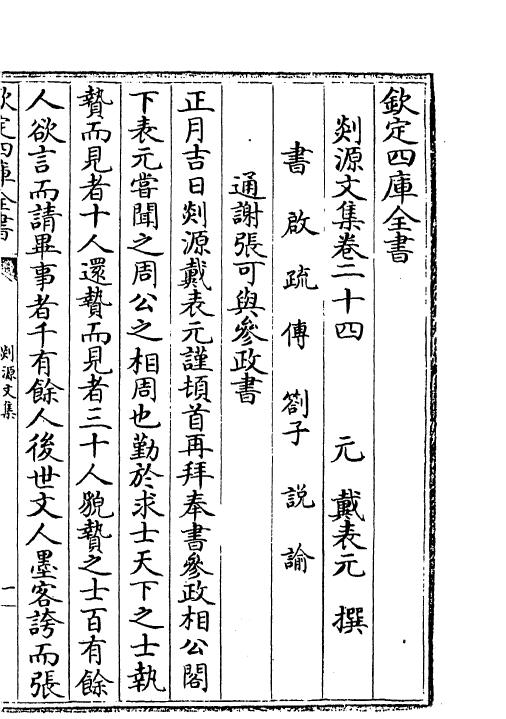 欽定四庫全書
剡源文集卷二十四 元 戴表元 撰
書 啟 疏 傳 劄子 説 諭
通謝張可與參政書
正月吉日剡源戴表元謹頓首再拜奉書參政相公閤
下表元嘗聞之周公之相周也勤於求士天下之士執
贄而見者十人還贄而見者三十人貌贄之士百有餘
人欲言而請畢事者千有餘人後世文人墨客誇而張
欽定四庫全書
剡源文集
一